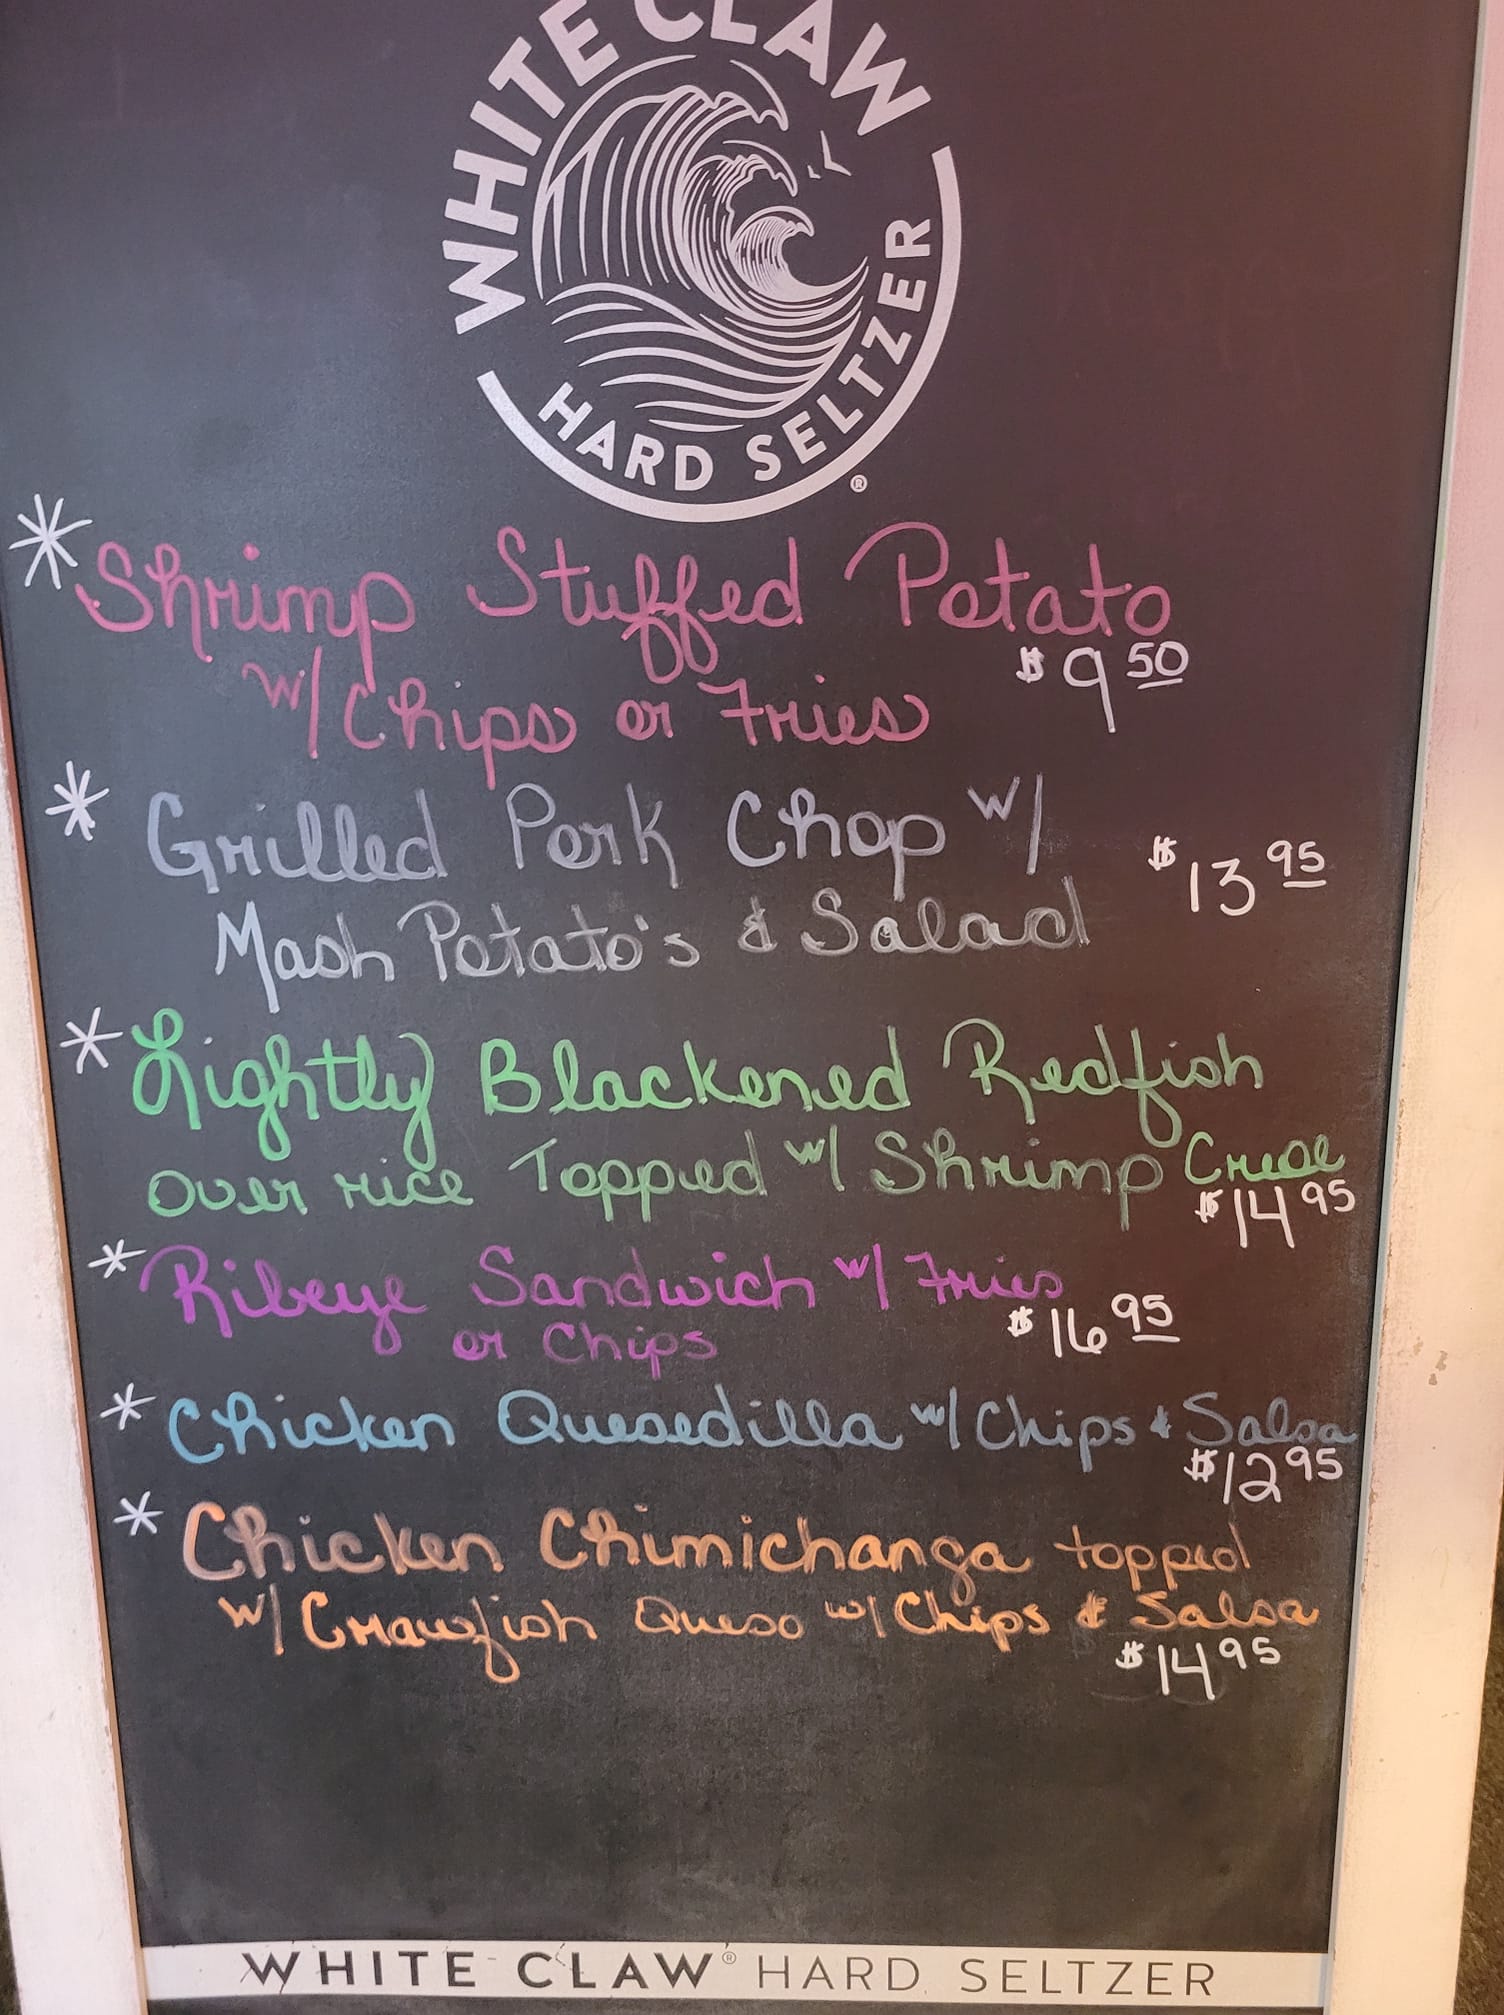 WHITE CLAW
HARD SELTZER
®
*Shrimp Stuffed Potato
w/ Chips or Fries $9.50
* Grilled Pork Chop w/
Mash Potato's & Salad $13.95
* Lightly Blackened Redfish
over rice Topped w/ Shrimp Creole
$14.95
* Ribeye Sandwich w/ Fries
or Chips $16.95
* Chicken Quesedilla w/ Chips & Salsa
$12.95
* Chicken Chimichanga topped
w/ Crawfish Queso w/ Chips & Salsa
$14.95
WHITE CLAW® HARD SELTZER